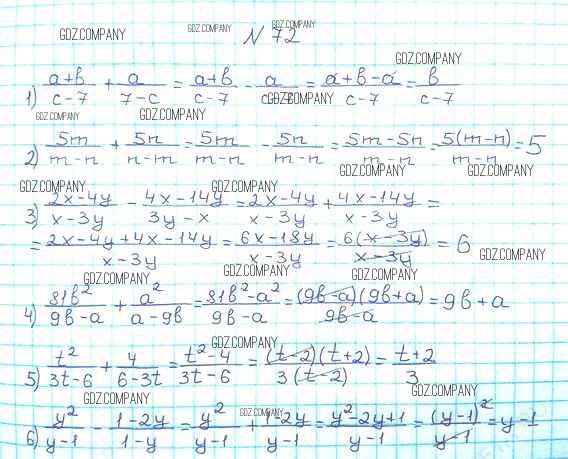 GDZ.COMPANY GDZ.COMPANY GDZ.COMPANY
№ 72
GDZ.COMPANY
1) (a+b)/(c-7) + a/(7-c) = (a+b)/(c-7) - a/(c-7) = (a+b-a)/(c-7) = b/(c-7)
GDZ.COMPANY
GDZ.COMPANY GDZ.COMPANY
2) 5m/(m-n) + 5n/(n-m) = 5m/(m-n) - 5n/(m-n) = (5m-5n)/(m-n) = 5(m-n)/(m-n) = 5
GDZ.COMPANY GDZ.COMPANY
GDZ.COMPANY GDZ.COMPANY
3) (2x-4y)/(x-3y) - (4x-14y)/(3y-x) = (2x-4y)/(x-3y) + (4x-14y)/(x-3y) =
= (2x-4y+4x-14y)/(x-3y) = (6x-18y)/(x-3y) = 6(x-3y)/(x-3y) = 6
GDZ.COMPANY
GDZ.COMPANY GDZ.COMPANY GDZ.COMPANY
4) 81b²/(9b-a) + a²/(a-9b) = (81b²-a²)/(9b-a) = (9b-a)(9b+a)/(9b-a) = 9b+a
5) t²/(3t-6) + 4/(6-3t) = (t²-4)/(3t-6) = (t-2)(t+2)/3(t-2) = (t+2)/3
GDZ.COMPANY GDZ.COMPANY
GDZ.COMPANY
6) y²/(y-1) - (1-2y)/(1-y) = y²/(y-1) + (1-2y)/(y-1) = (y²-2y+1)/(y-1) = (y-1)²/(y-1) = y-1